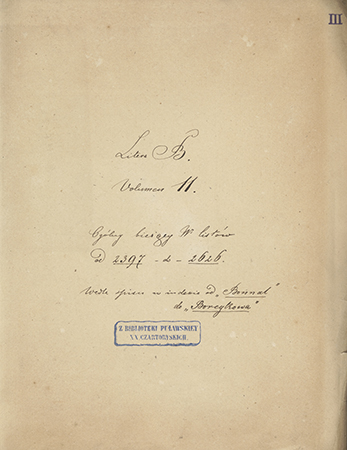 III
Litera B.
Volumen 11.
Ogólny bieżący Nr listów
od 2397 - do - 2626.
Wedle spisu w indexie od „Bonnat"
do „Boreykowa"
Z BIBLIOTEKI PUŁAWSKIEY
XX. CZARTORYSKICH.